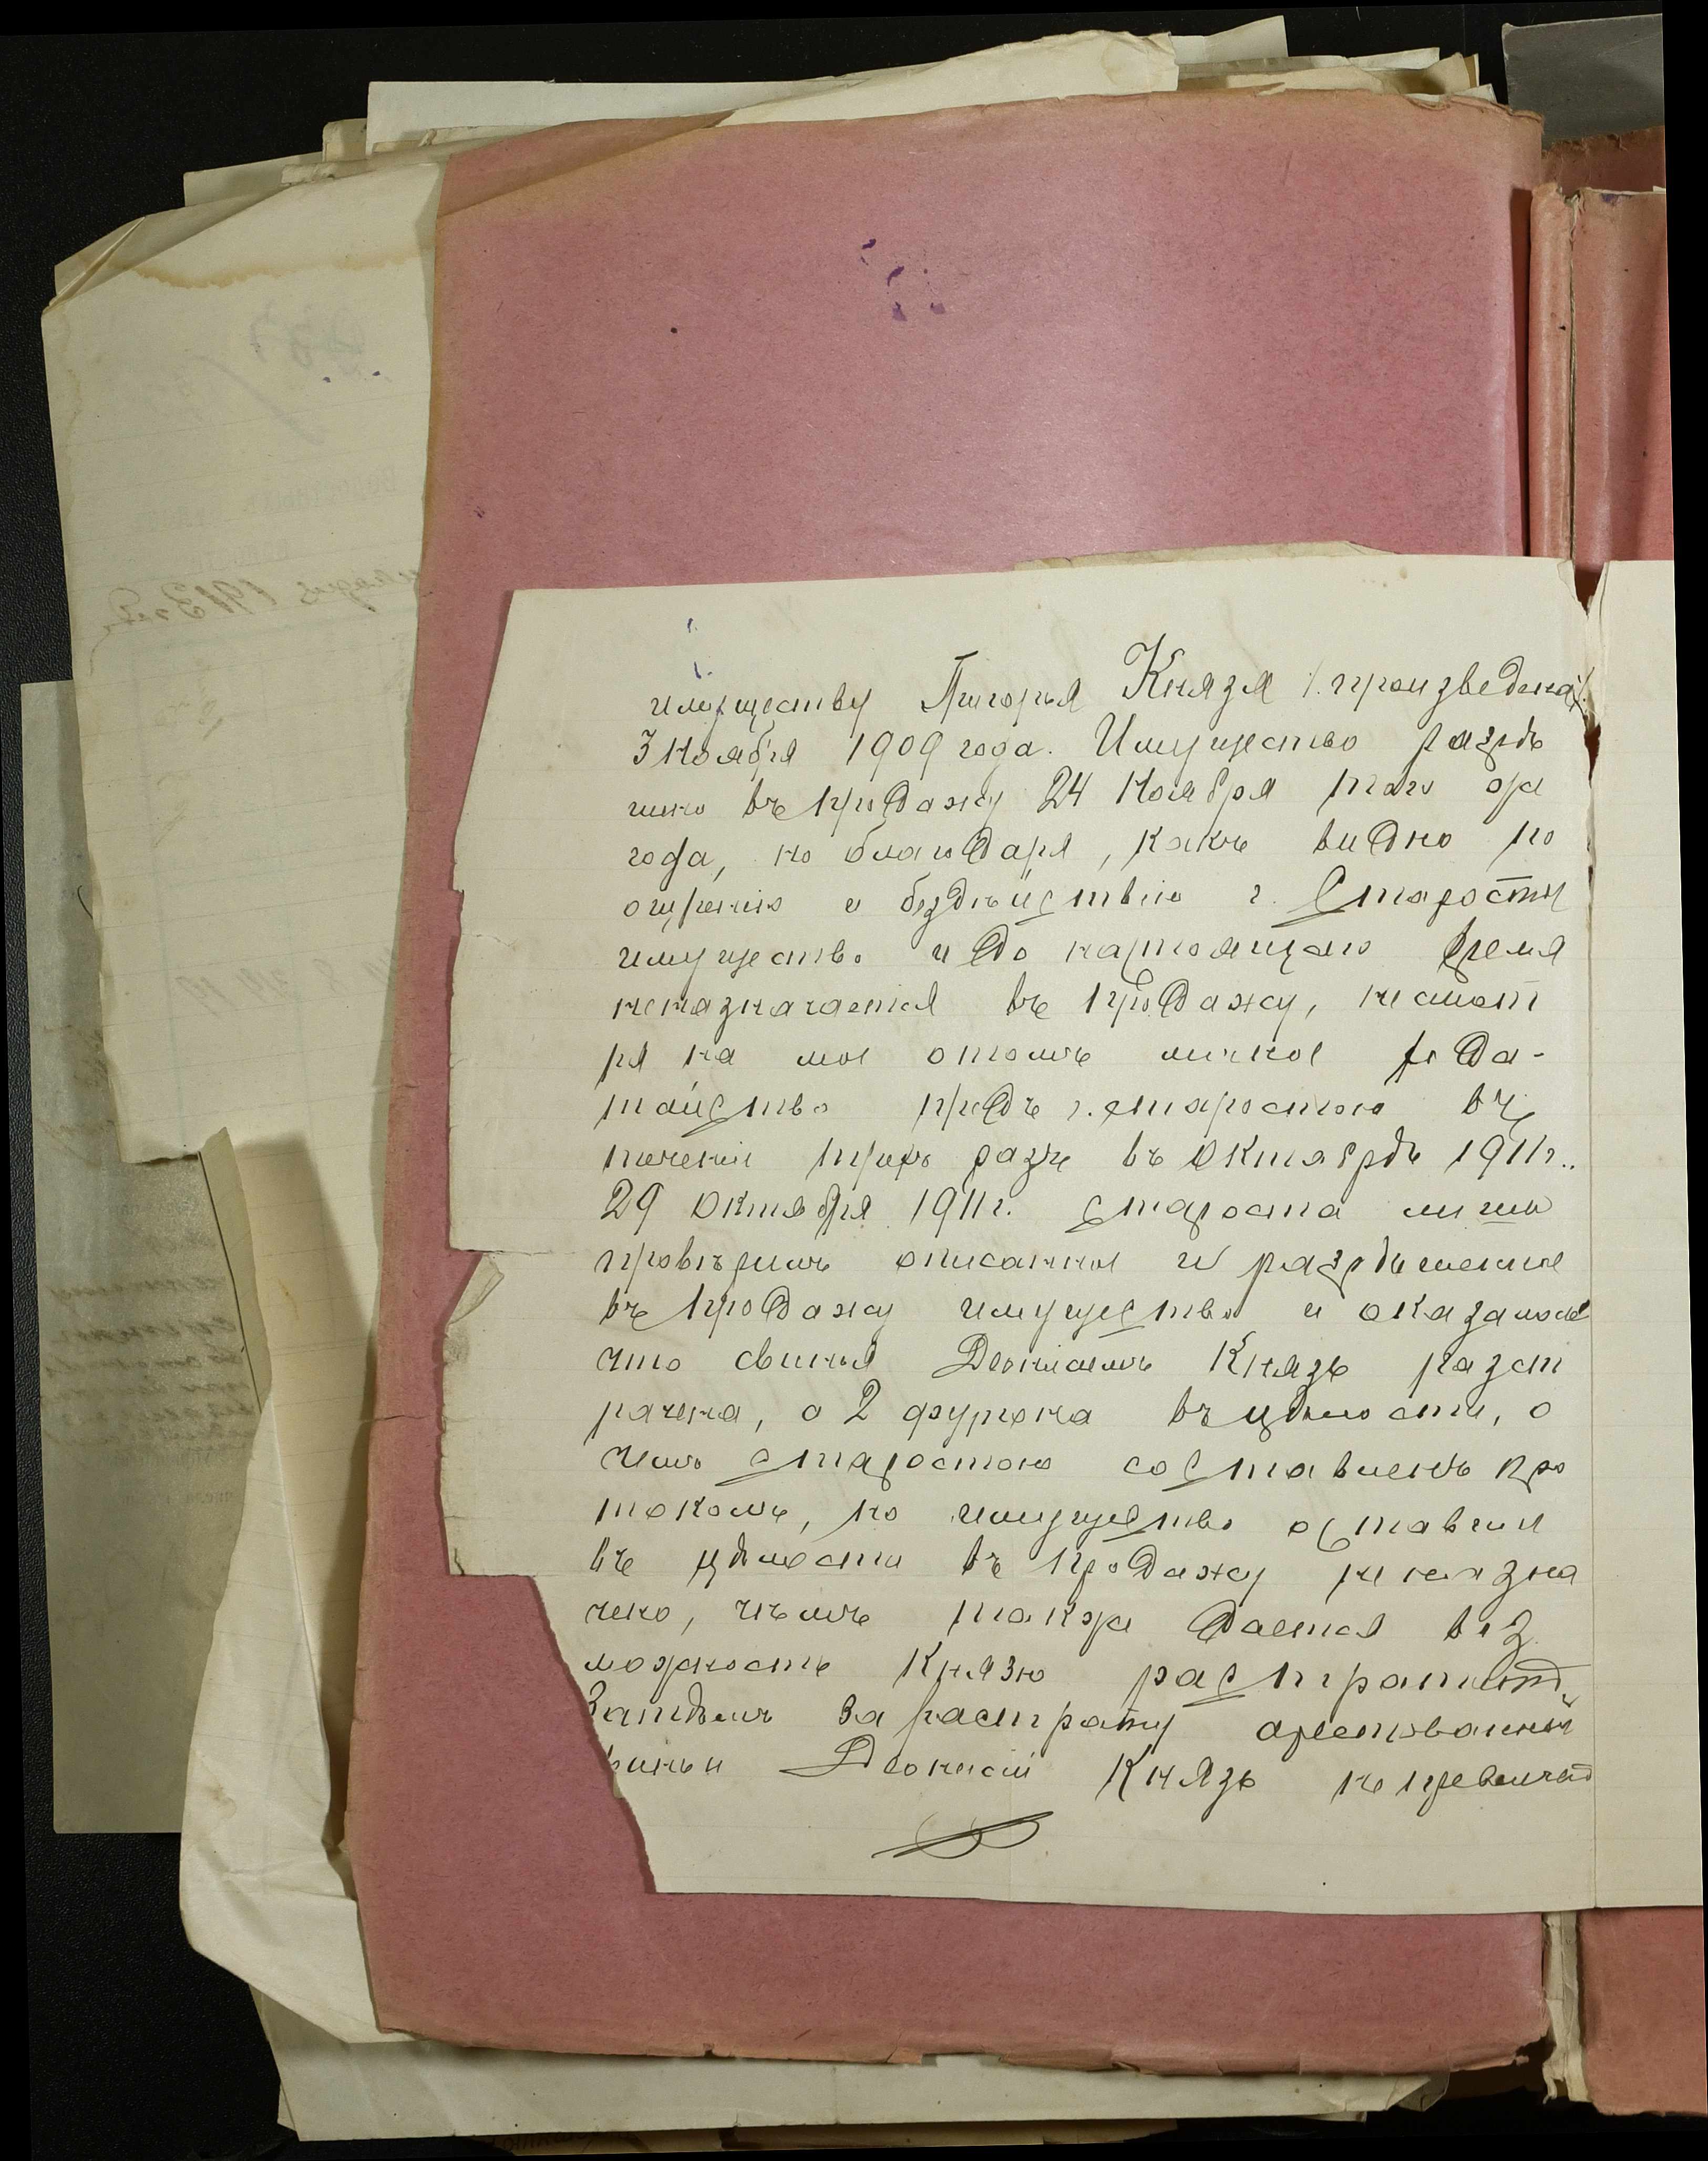 имуществу Григорья Князя /. произведена ./
3 Ноября 1909 года. Имущество разрѣ
шено въ продажу 24 Ноября того же
года, но благодаря, какъ видно по
и бездѣйствію г. Старосты
имущество и до настоящаго время
неназначается въ продажу, несмот
ря на мое отомъ личное хода-
тайство предъ г. старостою въ
течении трехъ разъ въ Октябрѣ 1911 г..
29 Октября 1911 г. Староста лишь
провѣрилъ описанное и разрѣшенное
въ продажу имущество и оказалось
что свинья Деонисіемъ Князь разст
рачена, а 2 фургона въ цѣлости, о
чемъ старостою составленъ про
токолъ, но имущество оставшие
въ цѣлости въ продажу неназна
чено, чѣмъ также дается воз
можность Князю растратить
Затѣмъ за растрату арестованный
свиньи Деонисій Князь не